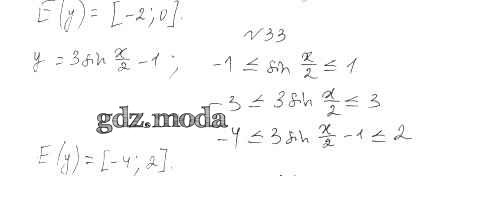 E(y) = [-2; 0].
№33
y = 3 sin x/2 - 1; -1 ≤ sin x/2 ≤ 1
-3 ≤ 3 sin x/2 ≤ 3
gdz.moda
-4 ≤ 3 sin x/2 - 1 ≤ 2
E(y) = [-4; 2].